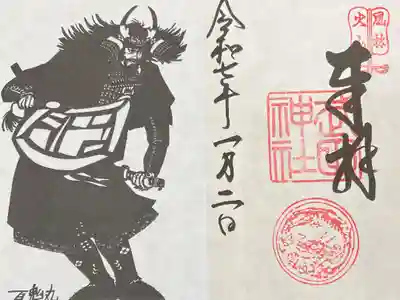 風林
火山
奉拝
武田
神社
令和七年一月二日
百鬼丸